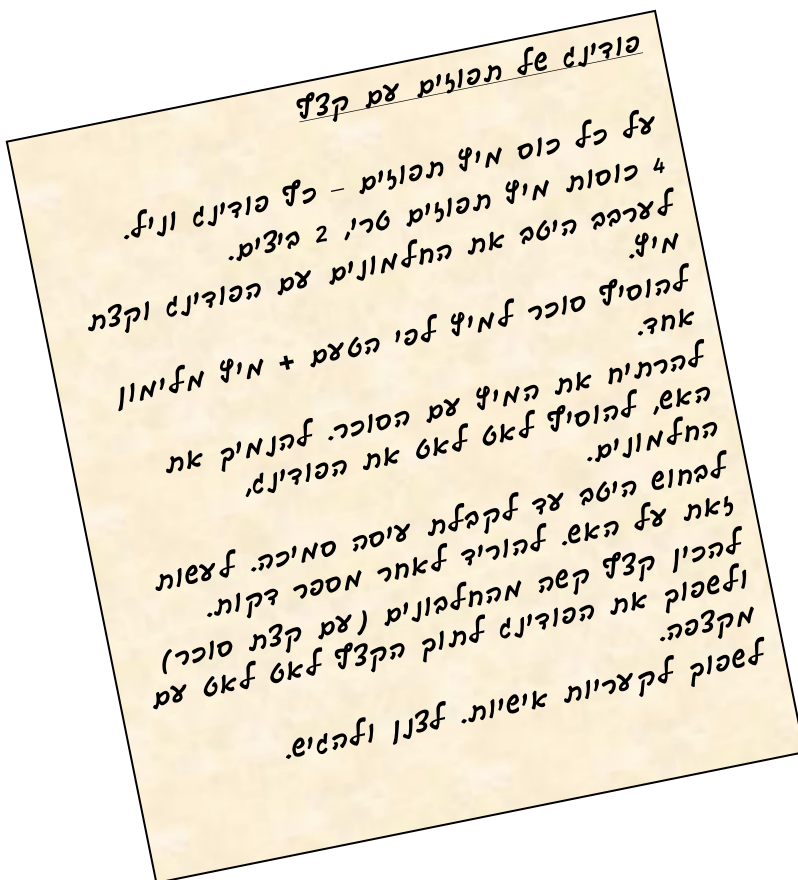 פודינג של תפוזים עם קצף
על כל כוס מיץ תפוזים – כף פודינג וניל.
4 כוסות מיץ תפוזים טרי, 2 ביצים.
לערבב היטב את החלמונים עם הפודינג וקצת
מיץ.
להוסיף סוכר למיץ לפי הטעם + מיץ מלימון
אחד.
להרתיח את המיץ עם הסוכר. להנמיך את
האש, להוסיף לאט לאט את הפודינג,
החלמונים.
לבחוש היטב עד לקבלת עיסה סמיכה. לעשות
זאת על האש. להוריד לאחר מספר דקות.
להכין קצף קשה מהחלבונים (עם קצת סוכר)
ולשפוך את הפודינג לתוך הקצף לאט לאט עם
מקצפה.
לשפוך לקעריות אישיות. לצנן ולהגיש.